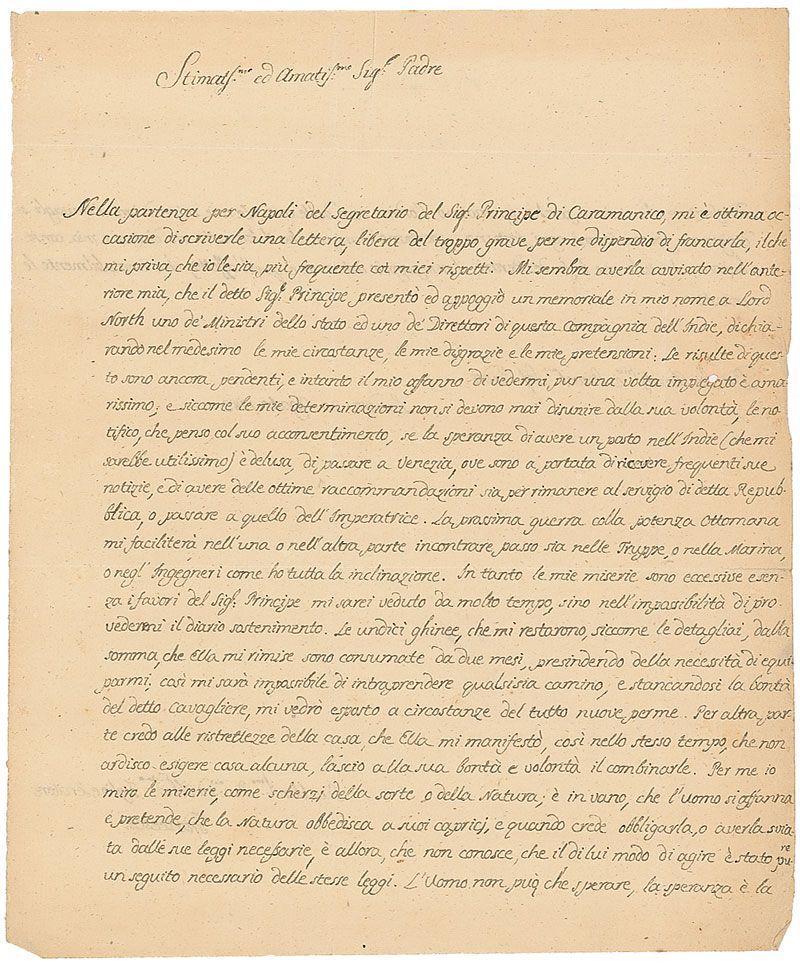 Stimatis.mo ed Amatis.mo Sig.r Padre
Nella partenza per Napoli del segretario del Sig.r Principe di Caramanico, mi è ottima oc-
casione di scriverle una lettera, libera del troppo grave, per me, dispendio di francarla, il che
mi priva, che io le sia, più frequente coi miei rispetti. Mi sembra averla avvisato nell'ante-
riore mia, che il detto Sig.r Principe presentò ed appoggiò un memoriale in mio nome a Lord
North uno de' Ministri dello stato ed uno de' Direttori di questa Compagnia dell'Indie, dichia-
rando nel medesimo le mie circostanze, le mie disgrazie e le mie pretensioni: Le risulte di ques-
to sono ancora pendenti, e intanto il mio affanno di vedermi, pur una volta impiegato è ama-
rissimo; e siccome le mie determinazioni non si devono mai disunire dalla sua volontà, le no-
tifico, che, penso col suo acconsentimento, se la speranza di avere un posto nell'Indie (che mi
sarebbe utilissimo) è delusa, di passare a Venezia, ove sono a portata di ricevere, frequenti sue
notizie, e di avere delle ottime raccommandazioni sia per rimanere al servigio di detta Repub-
blica, o passare a quello dell'Imperatrice. La prossima guerra colla potenza Ottomana
mi faciliterà nell'una o nell'altra, parte incontrare, passo sia nelle Truppe, o nella Marina,
o negl' Ingegneri come ho tutta la inclinazione. In tanto le mie miserie sono eccessive e sen-
za i favori del Sig.r Principe mi sarei veduto da molto tempo, sino nell'impassibilità di pro-
vedermi il diario sostenimento. Le undici ghinee, che mi restorono, siccome le detagliai, dalla
somma, che Ella mi rimise sono consumate da due mesi, presindendo della necessità di equi-
parmi. così mi sarà impossibile di intraprendere qualsisia camino, e stancandosi la bontà
del detto Cavagliere, mi vedrò esposto a circostanze del tutto nuove, per me. Per altra, par-
te credo alle ristrettezze della casa, che Ella mi manifestò, così nello stesso tempo, che non
ardisco esigere cosa alcuna, lascio alla sua bontà e volontà il combinarle. Per me io
miro le miserie, come scherzj della sorte o della Natura; è in vano, che l'uomo si affanna
e pretende, che la Natura obbedisca a suoi capricj, e quando crede obbligarla, o averla svia-
ta dalle sue leggi necessarie, è allora, che non conosce, che il di lui modo di agire è stato pure
un seguito necessario delle stesse leggi. L'Uomo non può, che sperare, la speranza è la